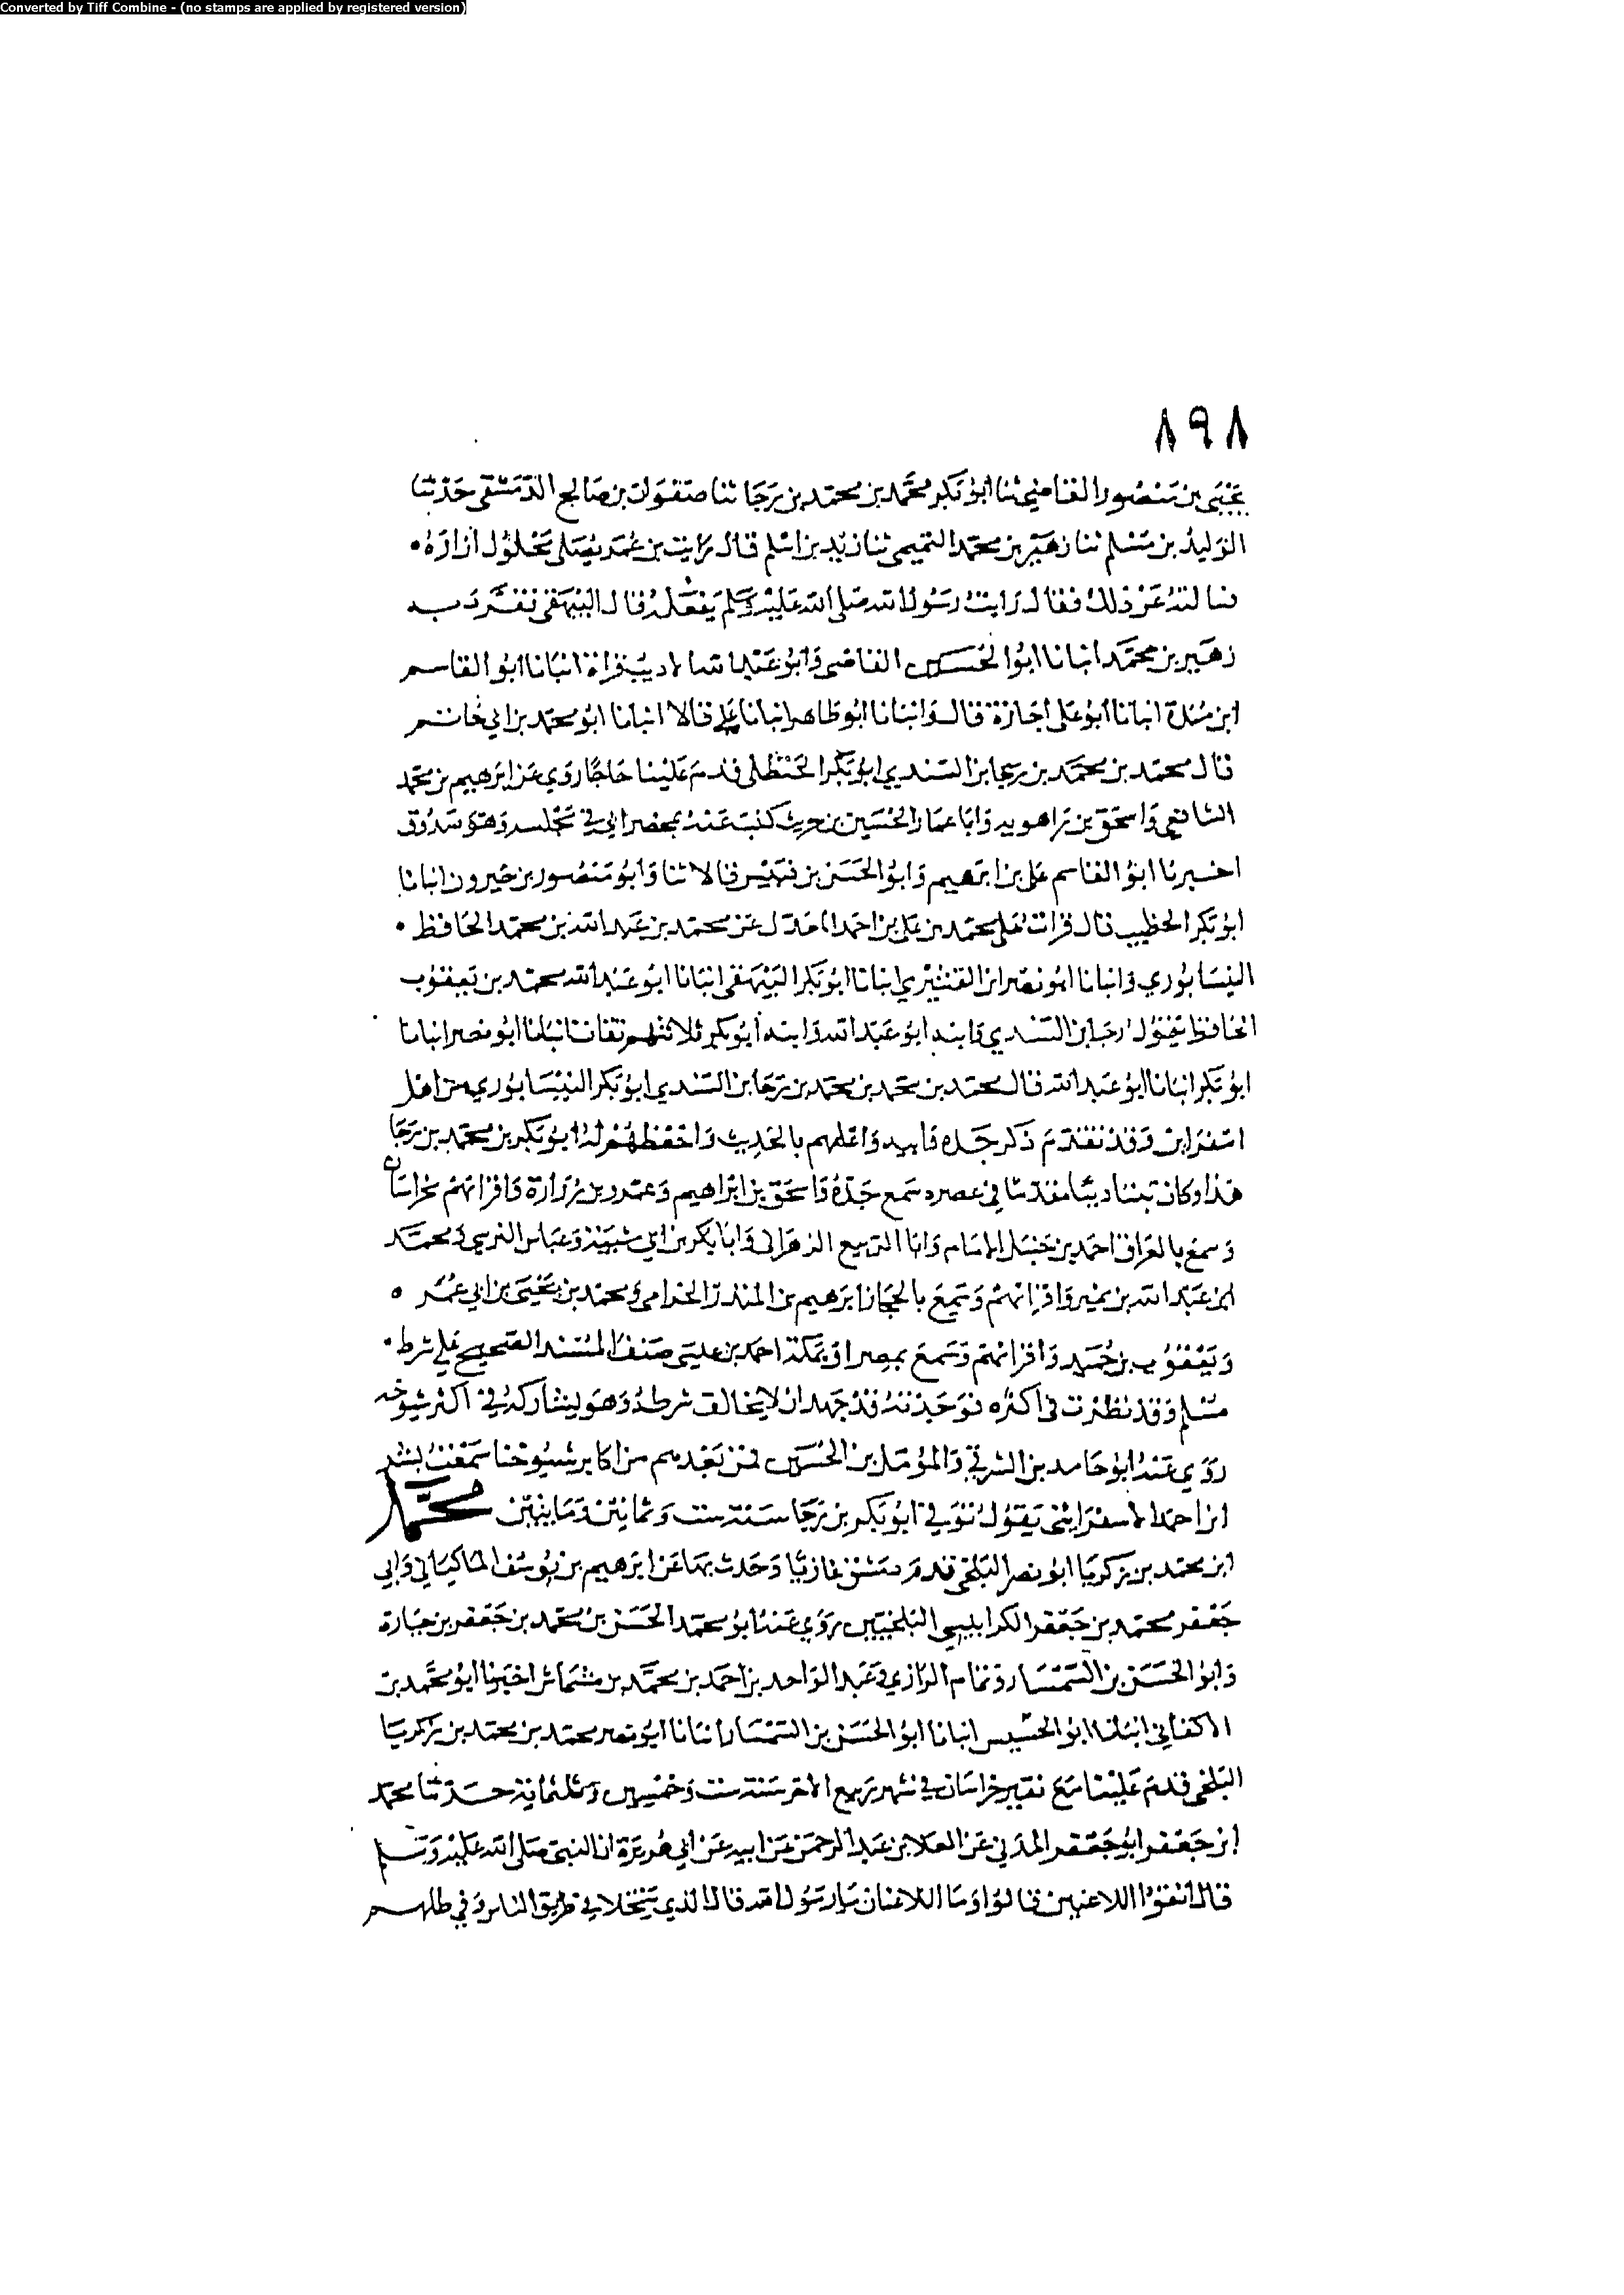 Converted by Tiff Combine - (no stamps are applied by registered version)
٨٩٨
يحيى بن منصور القاضي ثنا ابو بكر محمد بن محمد بن رجا ثنا صفوان بن صالح الدمشقي حدثنا
الوليد بن مسلم ثنا زهير بن محمد التميمي ثنا زيد بن اسلم قال رايت بن عمر يصلي محلول ازراره
فسالته عن ذلك فقال رايت رسول الله صلى الله عليه وسلم يفعله قال البيهقي تفرد به
زهير بن محمد انبانا ابو الحسين القاضي وابو عبد الله الاديب قراة انبانا ابو القاسم
ابن مندة انبانا ابو علي اجازة قال وانبانا ابو طاهر انبانا علي قالا انبانا ابو محمد بن ابي حاتم
قال محمد بن محمد بن رجا بن السندي ابو بكر الحنظلي قدم علينا حاجا روي عن ابرهيم بن محمد
الشافعي واسحق بن راهويه وابا عمار الحسين بن حريث كتبت عنه بمحضر ابي في مجلسه وهو صدوق
اخبرنا ابو القاسم علي بن ابرهيم وابو الحسن بن قبيس قالا ثنا وابو منصور بن خيرون انبانا
ابو بكر الخطيب قال قرات على محمد بن علي بن احمد المعدل عن محمد بن عبد الله بن محمد الحافظ
النيسابوري وانبانا ابو نصر ابن القشيري انبانا ابو بكر البيهقي انبانا ابو عبد الله محمد بن يعقوب
الحافظ يقول رجا بن السندي وابنه ابو عبد الله وابنه ابو بكر ثلاثتهم ثقات انبانا ابو نصر انبانا
ابو بكر انبانا ابو عبد الله قال محمد بن محمد بن محمد بن رجا بن السندي ابو بكر النيسابوري من اهل
اسفراين وقد تقدم ذكر جده وابيه واعلمهم بالحديث واحفظهم له ابو بكر بن محمد بن رجا
هذا وكان ثبتا دينا مقدما في عصره سمع جده واسحق بن ابراهيم وعمرو بن زرارة واقرانهم بخراسان
وسمع بالعراق احمد بن حنبل الامام وابا الربيع الزهراني وابا بكر بن ابي شيبة وعباس النرسي ومحمد
ابن عبد الله بن نمير واقرانهم وسمع بالحجاز ابرهيم بن المنذر الحزامي ومحمد بن يحيى بن ابي عمر
ويعقوب بن حميد واقرانهم وسمع بمصر او بمكة احمد بن عيسى صنف المسند الصحيح على شرط
مسلم وقد نظرت في اكثره فوجدته قد جهد ان لا يخالف شرطه وهو يشاركه في اكثر شيوخه
روي عنه ابو حامد بن الشرقي والمؤمل بن الحسين فمن بعدهم من اكابر شيوخنا سمعت بشر
ابن احمد الاسفرايني يقول توفي ابو بكر بن رجا سنة ست وثمانين ومايتين محمد
ابن محمد بن زكريا ابو نصر البلخي قدم دمشق غازيا وحدث بها عن ابرهيم بن يوسف الماكياني وابي
جعفر محمد بن جعفر الكرابيسي البلخيين روي عنه ابو محمد الحسن بن محمد بن جعفر بن جبارة
وابو الحسن بن السمسار وتمام الرازي وعبد الواحد بن احمد بن محمد بن مشماش اخبرنا ابو محمد بن
الاكفاني انبانا ابو الحسين انبانا ابو الحسن بن السمسار انبانا ابو نصر محمد بن محمد بن زكريا
البلخي قدم علينا مع نفير خراسان في شهر ربيع الاخر سنة ست وخمسين وثلثماية حدثنا محمد
ابن جعفر ابو جعفر المدني عن العلا بن عبد الرحمن عن ابيه عن ابي هريرة ان النبي صلى الله عليه وسلم
قال اتقوا اللاعنين قالوا وما اللاعنان يا رسول الله قال الذي يتخلا في طريق الناس وفي ظلهم